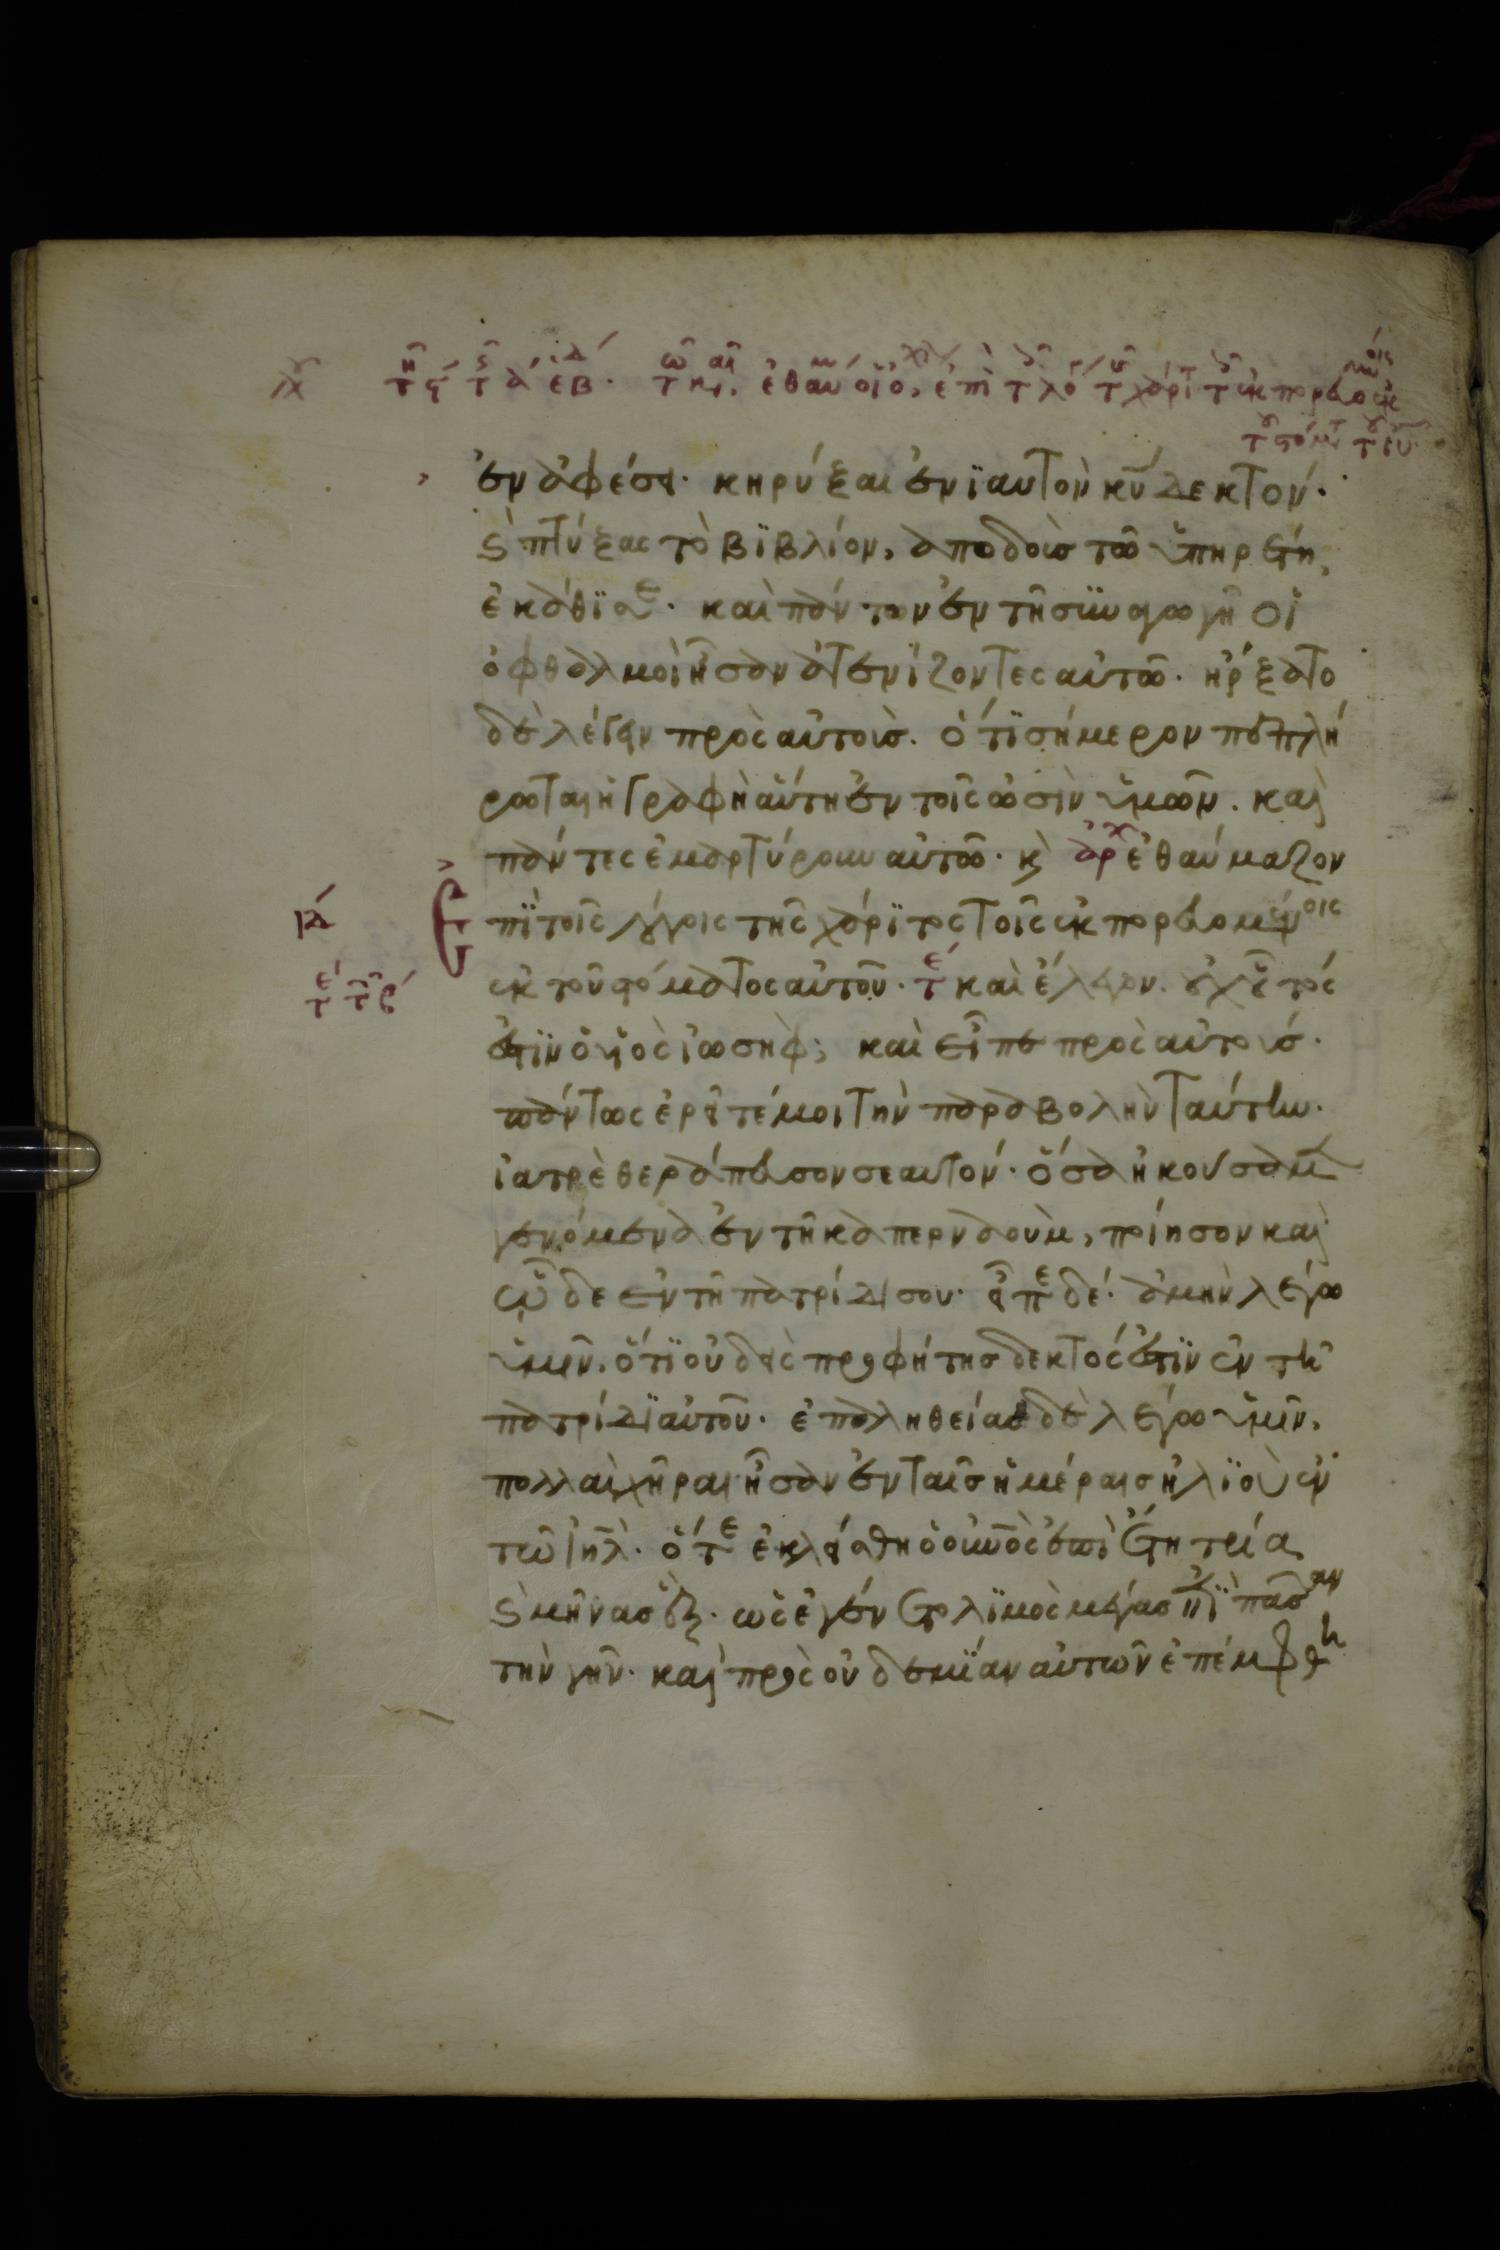 ἐν ἀφέσει· κηρύξαι ἐνϊαυτὸν κ̅υ̅ δεκτόν·
ϛ πτύξας τὸ βϊβλίον, ἀποδοὺσ τῶ ὑπηρέτη,
ἐκάθϊσε· καὶ πάντων ἐν τῆ συναγωγῆ οἱ
ὀφθαλμοὶ ἦσαν ἀτενΐζοντες αὐτῶ· ἤρξατο
δὲ λέγειν πρὸς αὐτούσ· ὅτϊ σήμερον πεπλή
ρωται ἡ γραφὴ αὕτη ἐν τοῖς ὠσὶν ὑμῶν· καὶ
πάντες ἐμαρτύρουν αὐτῶ· κ ἀρχ ἐθαύμαζον
ἐπϊ τοῖς λόγοις τῆς χάρϊτος τοῖς ἐκπορευομένοις
ἐκ τοῦ στόματος αὐτοῦ· τε καὶ ἔλεγον· οὐχ οὗτός
ἐστϊν ὁ υἱὸς ἰωσήφ; καὶ εἶπε πρὸς αὐτούσ·
πάντως ἐρεῖτέ μοι τὴν παραβολὴν ταύτην·
ἰατρὲ θεράπευσον σεαυτόν· ὅσα ἠκούσαμεν
γενόμενα ἐν τῆ καπερναούμ, ποίησον καὶ
ὧδε ἐν τῆ πατρίδι σου· εἶπε δέ· ἀμὴν λέγω
ὑμῖν, ὅτϊ οὐδεὶς προφήτησ δεκτός ἐστϊν ἐν τῆ
πατρίδϊ αὐτοῦ· ἐπ ἀληθείας δὲ λέγω ὑμῖν,
πολλαὶ χῆραι ἦσαν ἐν ταῖσ ἡμέραισ ἠλϊοὺ ἐν
τῶ ἰη̅λ· ὅτε ἐκλείσθη ὁ οὐ̅νὸς ἐπὶ ἔτη τρία
ϛ μῆνασ ἕξ· ὡς ἐγένετο λϊμὸς μέγασ ἐπϊ πᾶσαν
τὴν γῆν· καὶ πρὸς οὐδεμΐαν αὐτῶν ἐπέμφθη